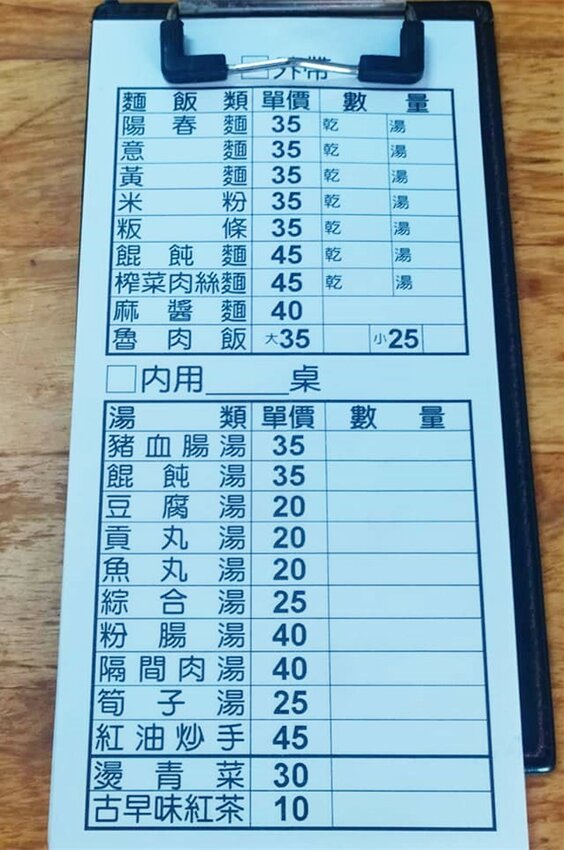 □外帶
麵飯類 單價 數量
陽春麵 35 乾 湯
意麵 35 乾 湯
黃麵 35 乾 湯
米粉 35 乾 湯
粄條 35 乾 湯
餛飩麵 45 乾 湯
榨菜肉絲麵 45 乾 湯
麻醬麵 40
魯肉飯 大35 小25
□內用_____桌
湯類 單價 數量
豬血腸湯 35
餛飩湯 35
豆腐湯 20
貢丸湯 20
魚丸湯 20
綜合湯 25
粉腸湯 40
隔間肉湯 40
筍子湯 25
紅油炒手 45
燙青菜 30
古早味紅茶 10